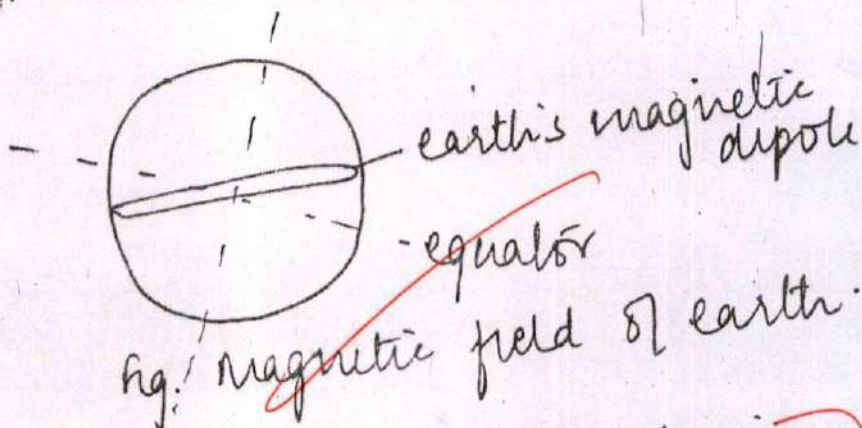 earth's magnetic
dipole
equator
fig: Magnetic field of earth.